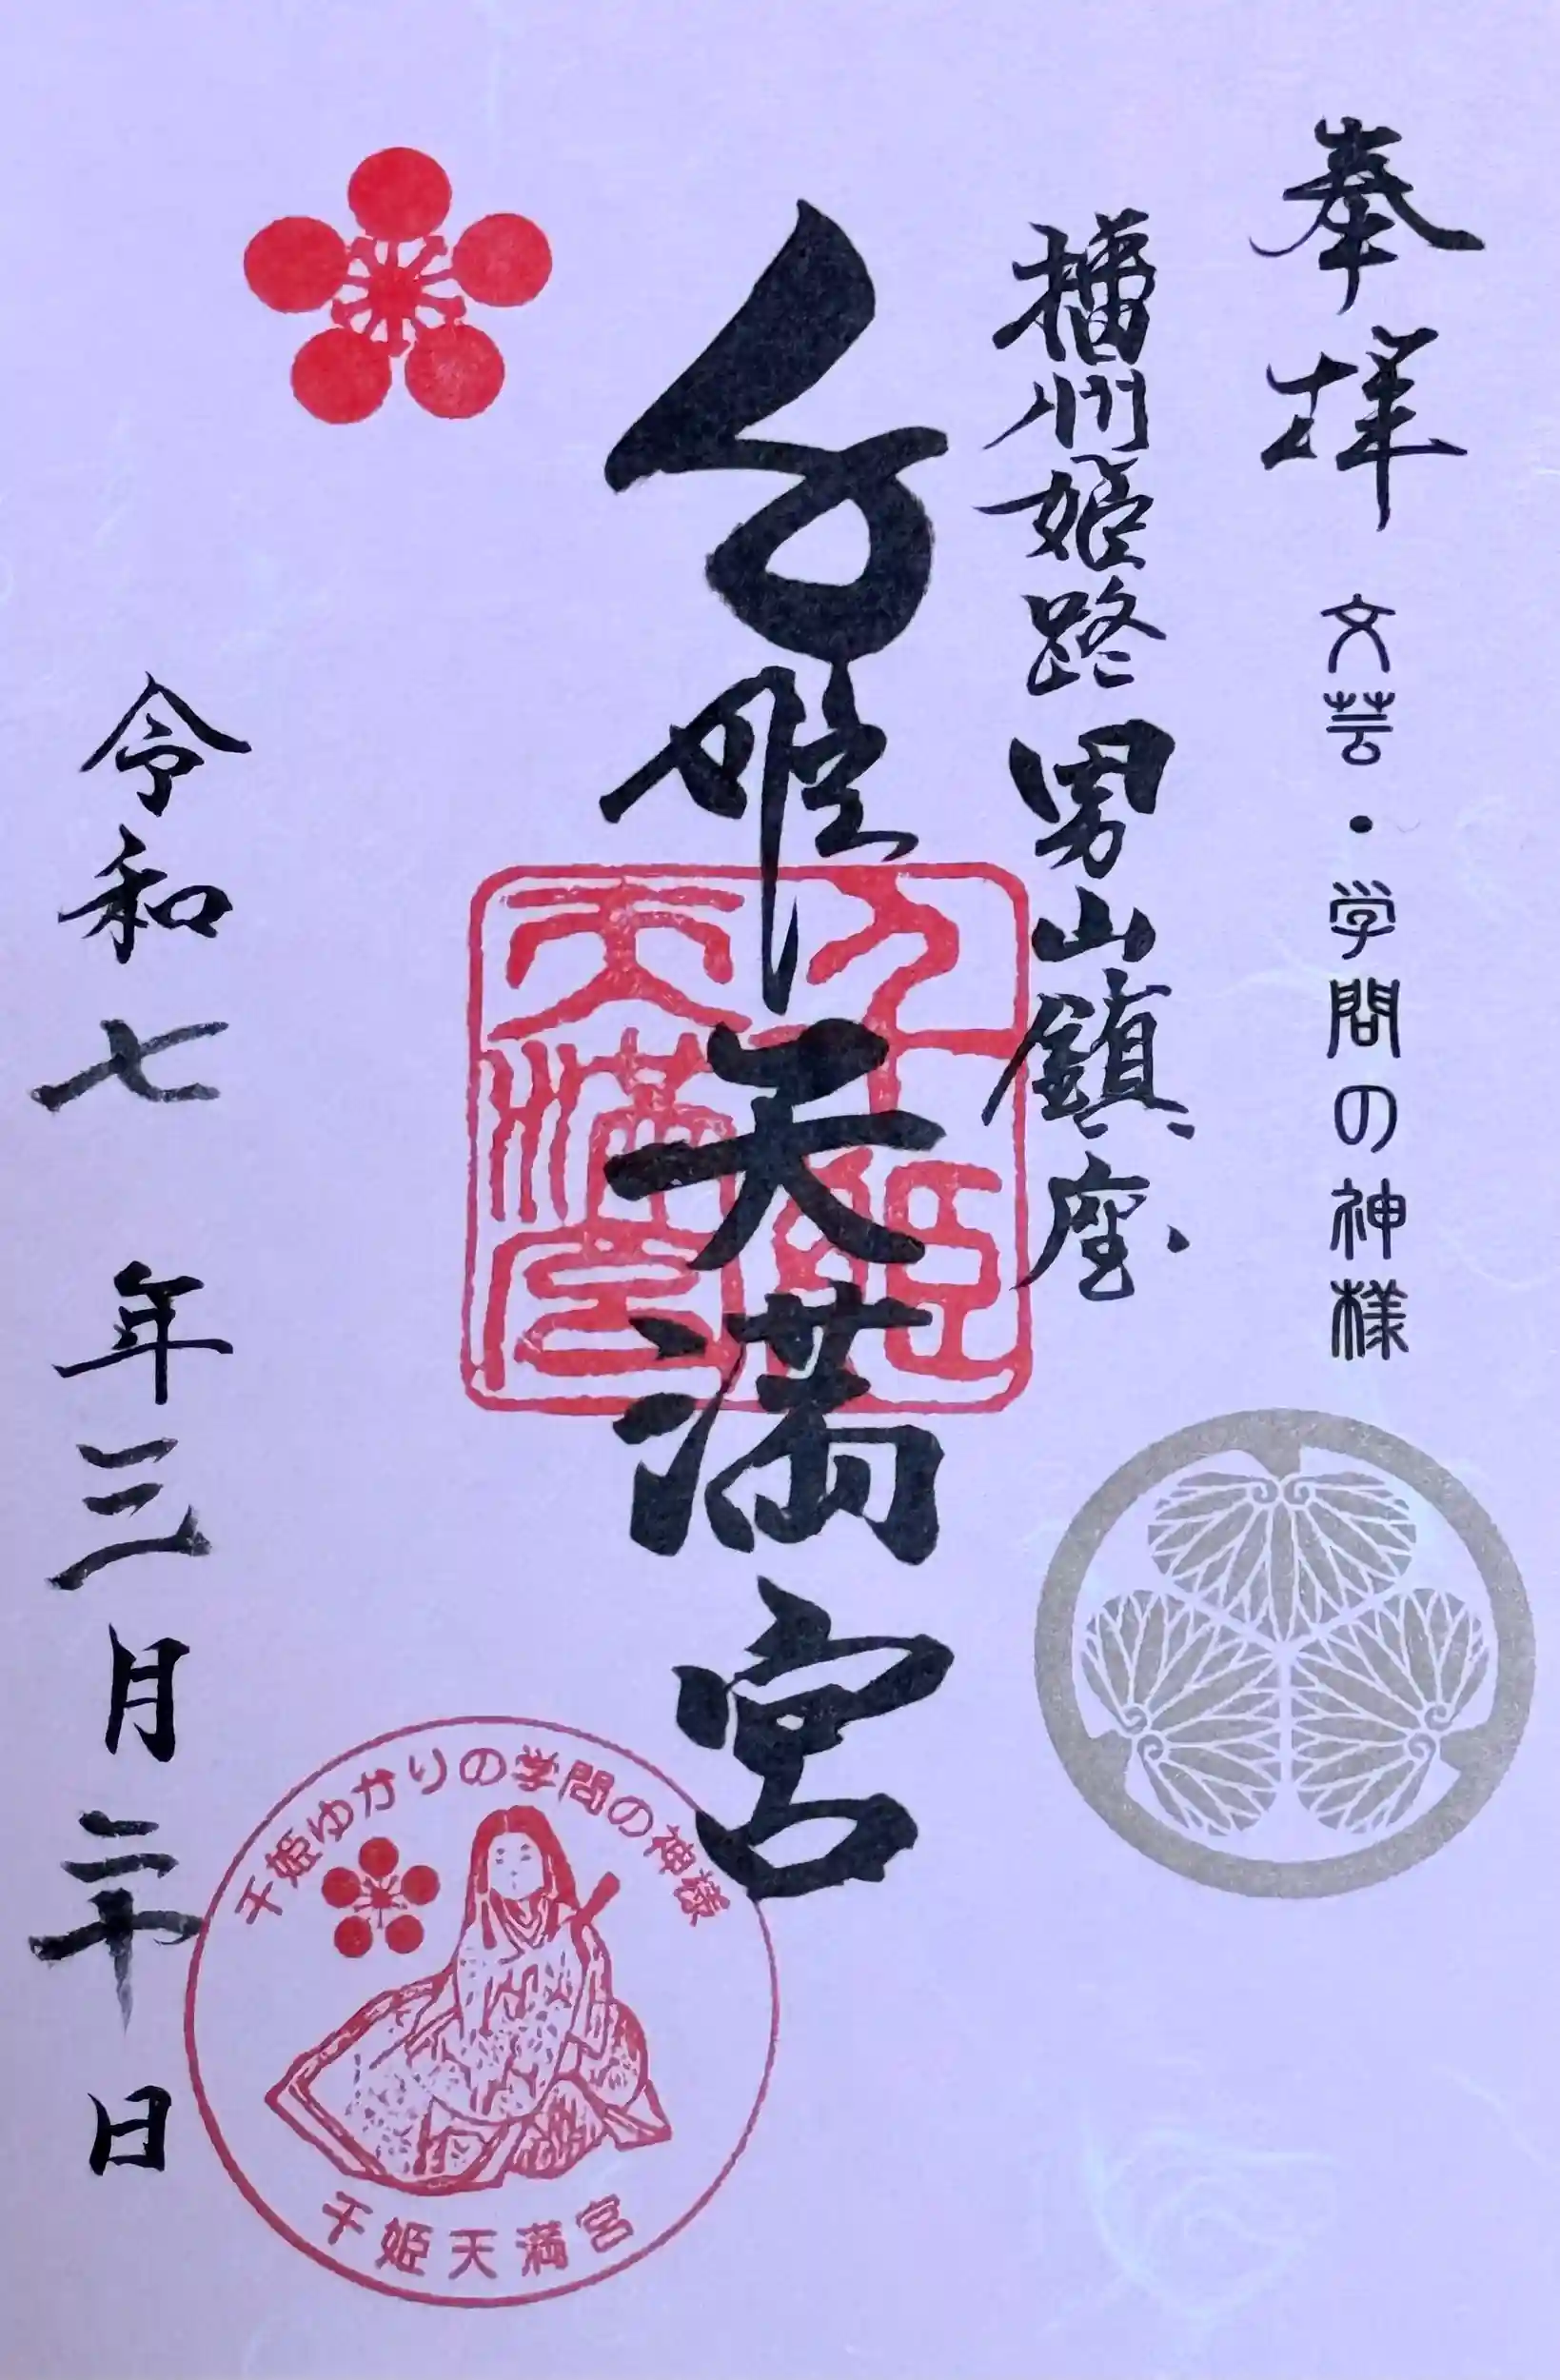 奉拝
文芸・学問の神様
播州姫路男山鎮座
千姫天満宮
千姫天満宮
令和七年三月二十日
千姫ゆかりの学問の神様
千姫天満宮